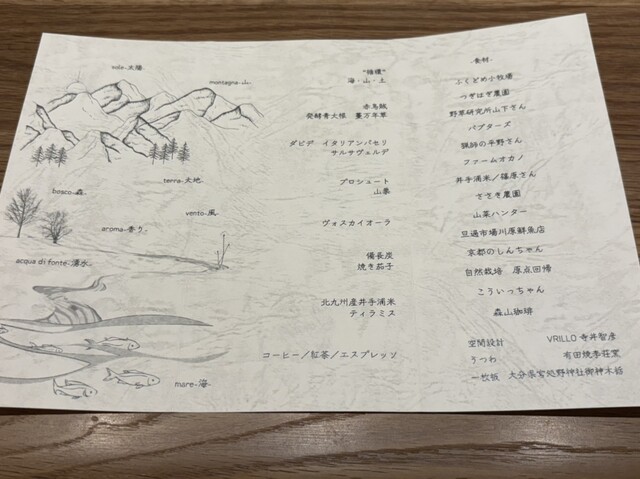 sole-太陽-
montagna-山-
terra-大地-
bosco-森-
vento-風-
aroma-香り-
acqua di fonte-湧水-
mare-海-
海・山・土
赤鳥賊
発酵青大根 蔓万年草
ダビデ イタリアンパセリ
サルサヴェルデ
プロシュート
山栗
ヴォスカイオーラ
備長炭
焼き茄子
北九州産井手浦米
ティラミス
コーヒー／紅茶／エスプレッソ
-食材-
ふくどめ小牧場
つぎはぎ農園
野草研究所山下さん
パプターズ
猟師の平野さん
ファームオカノ
井手浦米／篠原さん
ささき農園
山菜ハンター
旦過市場川原鮮魚店
京都のしんちゃん
自然栽培 原点回帰
こういっちゃん
森山珈琲
空間設計 VRILLO 寺井智彦
うつわ 有田焼李荘窯
一枚板 大分県宮処野神社御神木栃